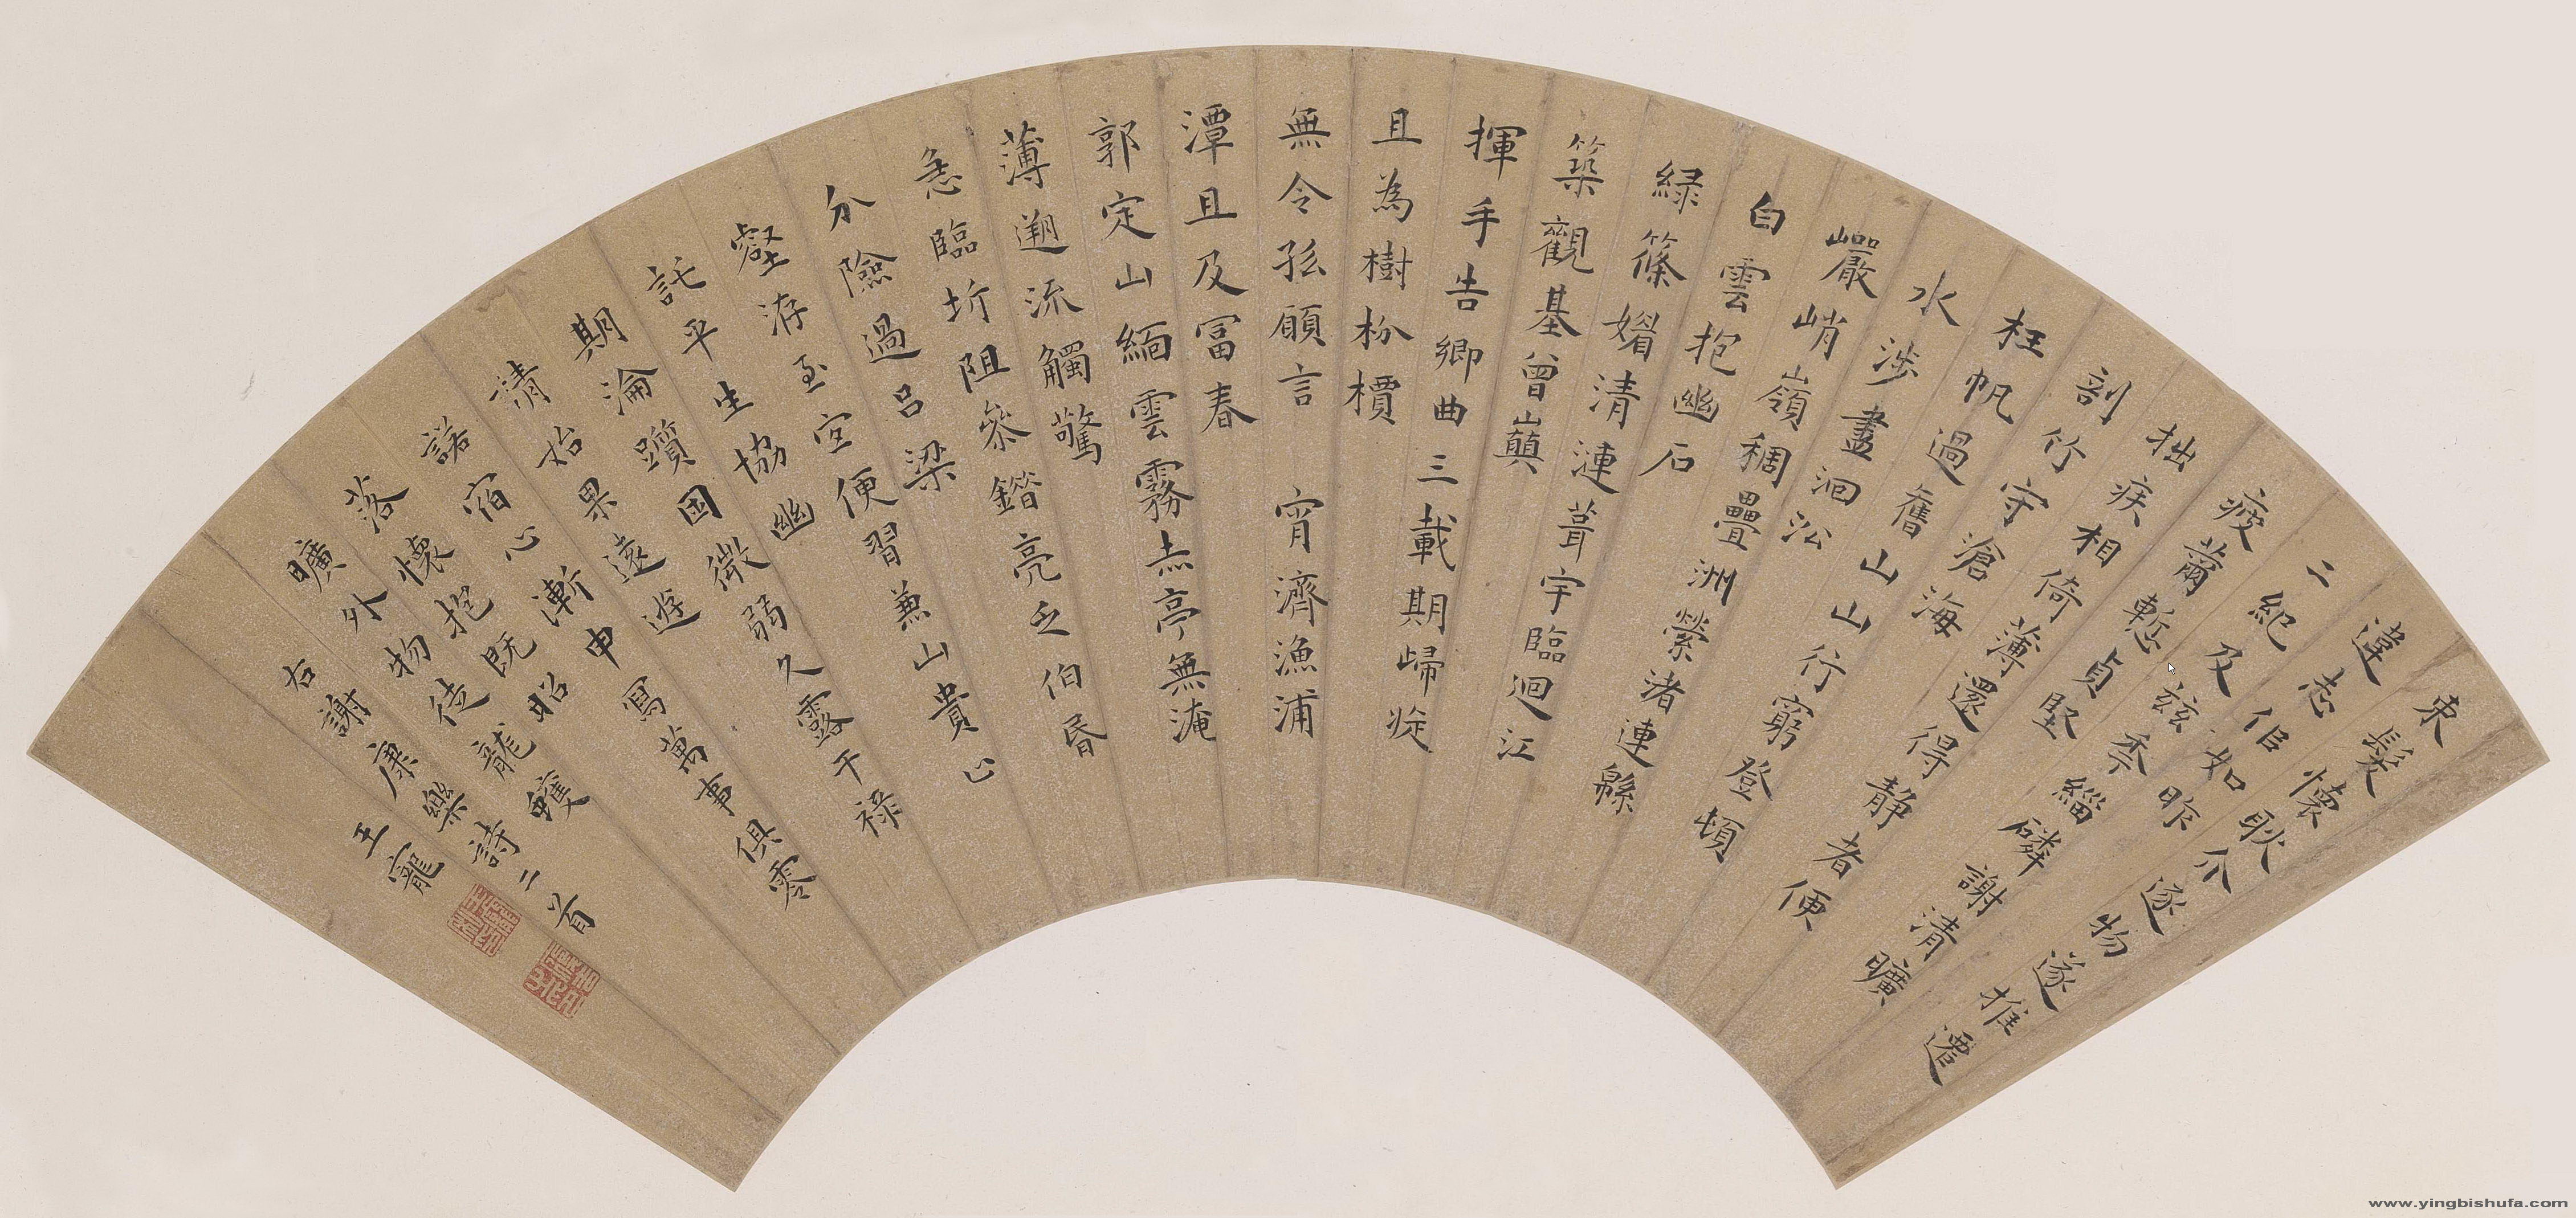 束髮懷耿介逐物遂推遷
違志佀如昨
二紀及茲秊緇磷謝清曠
疲薾慙貞堅
拙疾相倚薄還得靜者便
剖竹守滄海
枉帆過舊山山行窮登頓
水涉盡洄㳂
巖峭嶺稠疊洲縈渚連緜
白雲抱幽石
緑篠媚清漣葺宇臨迴江
築觀基曾巔
揮手告鄉曲三載期歸旋
且為樹枌檟
無令孤願言 宵濟漁浦
潭旦及富春
郭定山緬雲霧赤亭無淹
薄遡流觸驚
急臨圻阻參錯亮乏伯昏
分險過呂梁
壑洊至宜便習兼山貴止
託平生協幽
期淪躓困微弱久露干祿
請始果遠遊
諾宿心漸申寫萬事俱零
落懷抱既昭
曠外物徒龍蠖
右謝康樂詩二首
王寵
www.yingbishufa.com